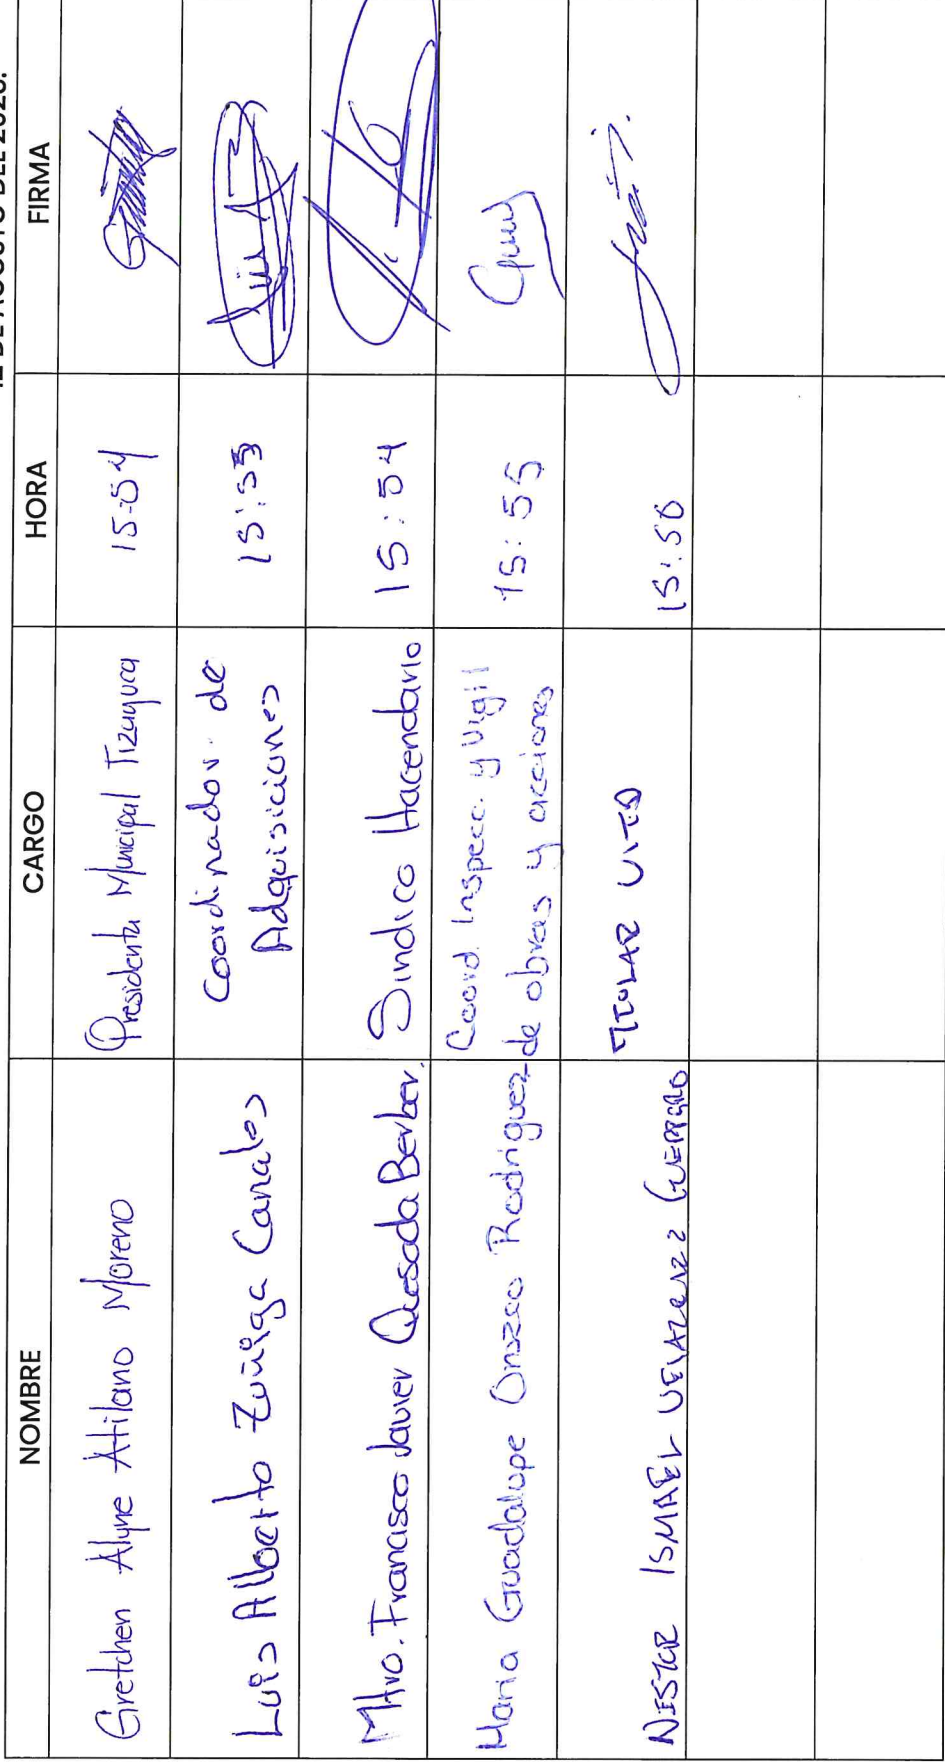 12 DE AGOSTO DEL 2025.
NOMBRE CARGO HORA FIRMA
Gretchen Alyne Atilano Moreno Presidenta Municipal Tizayuca 15:54
Luis Alberto Zuñiga Canales Coordinador de Adquisiciones 15:55
Mtro. Francisco Javier Quesada Berber. Sindico Hacendario 15:54
Maria Guadalupe Orozco Rodriguez Coord. Inspecc y Vigil de obras y acciones 15:55
NESTOR ISMAEL VELAZQUEZ GUERRERO TITULAR 15:58